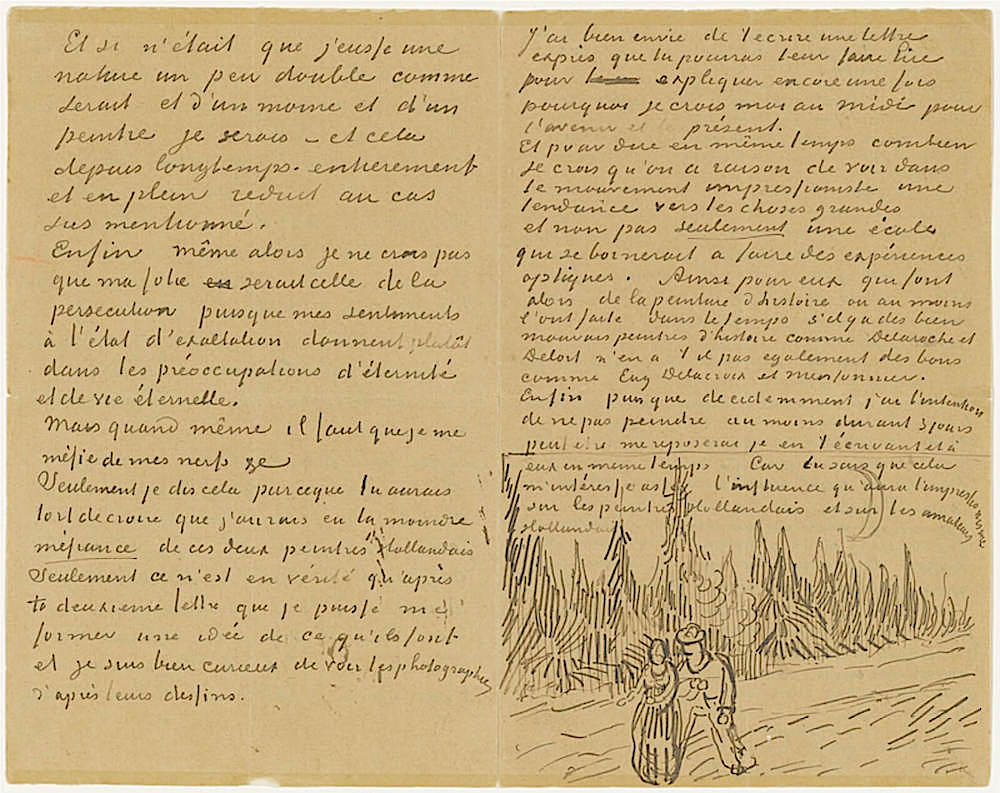 Et si n'était que j'eusse une
nature un peu double comme
serait et d'un moine et d'un
peintre je serais – et cela
depuis longtemps. entièrement
et en plein réduit au cas
sus mentionné.
Enfin même alors je ne crois pas
que ma folie en serait celle de la
persecution puisque mes sentiments
à l'état d'exaltation donnent plutôt
dans les préoccupations d'éternité
et de vie éternelle.
Mais quand même il faut que je me
méfie de mes nerfs &c
Seulement je dis cela parceque tu aurais
tort de croire que j'aurais eu la moindre
méfiance de ces deux peintres Hollandais
Seulement ce n'est en vérité qu'après
ta deuxieme lettre que je puisse me
former une idée de ce qu'ils font
et je suis bien curieux de voir les photographies
d'après leurs dessins.
J'ai bien envie de t'ecrire une lettre
exprès que tu pourras leur faire lire
pour expliquer encore une fois
pourquoi je crois moi au midi pour
l'avenir et le présent.
Et pour dire en même temps combien
je crois qu'on a raison de voir dans
le mouvement impressioniste une
tendance vers les choses grandes
et non pas seulement une école
qui se bornerait à faire des expériences
optiques. Ainsi pour eux qui font
alors de la peinture d'histoire ou au moins
l'ont faite dans le temps s'il y a des bien
mauvais peintres d'histoire comme Delaroche et
Delort n'en a t'il pas egalement des bons
comme Eug Delacroix et Meissonnier.
Enfin puisque decidemment j'ai l'intention
de ne pas peindre au moins durant 3 jours
peut etre me reposerai je en t'écrivant et à
eux en meme temps Car tu sais que cela
m'interesse assez l'influence qu'aura l'impressionisme
sur les peintres Hollandais et sur les amateurs
Hollandais